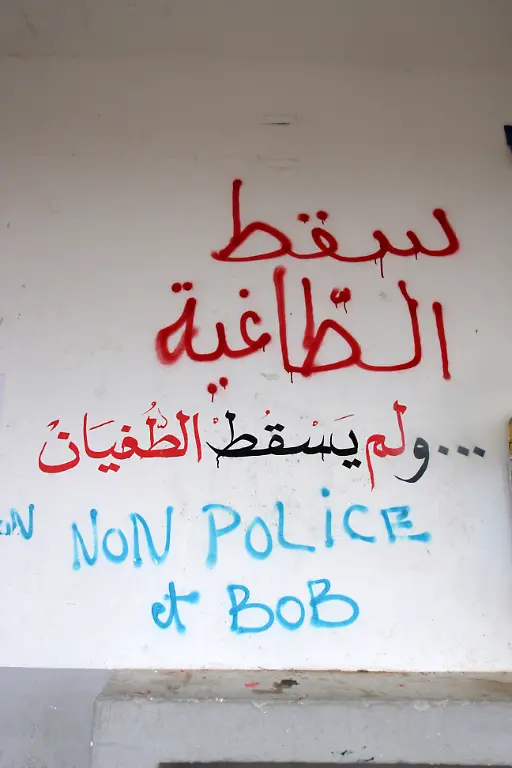 سقط
الطّاغية
...ولم يَسْقُطْ الطُّغيَانْ
NON POLICE
et BOB